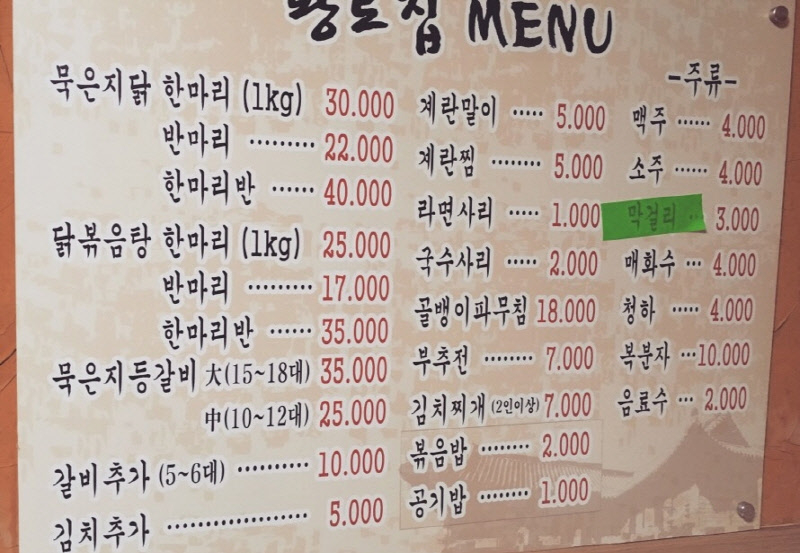 황토집 MENU
묵은지닭 한마리 (1kg) 30.000
반마리 ········· 22.000
한마리반 ······ 40.000
닭볶음탕 한마리 (1kg) 25.000
반마리 ········· 17.000
한마리반 ······ 35.000
묵은지등갈비 大(15~18대) 35.000
中(10~12대) 25.000
갈비추가 (5~6대) ··········· 10.000
김치추가 ····················· 5.000
계란말이 ····· 5.000
계란찜 ········ 5.000
라면사리 ····· 1.000
국수사리 ····· 2.000
골뱅이파무침 18.000
부추전 ········ 7.000
김치찌개 (2인이상) 7.000
볶음밥 ········ 2.000
공기밥 ········ 1.000
-주류-
맥주 ······ 4.000
소주 ······ 4.000
막걸리 ··· 3.000
매화수 ··· 4.000
청하 ····· 4.000
복분자 ···10.000
음료수 ··· 2.000